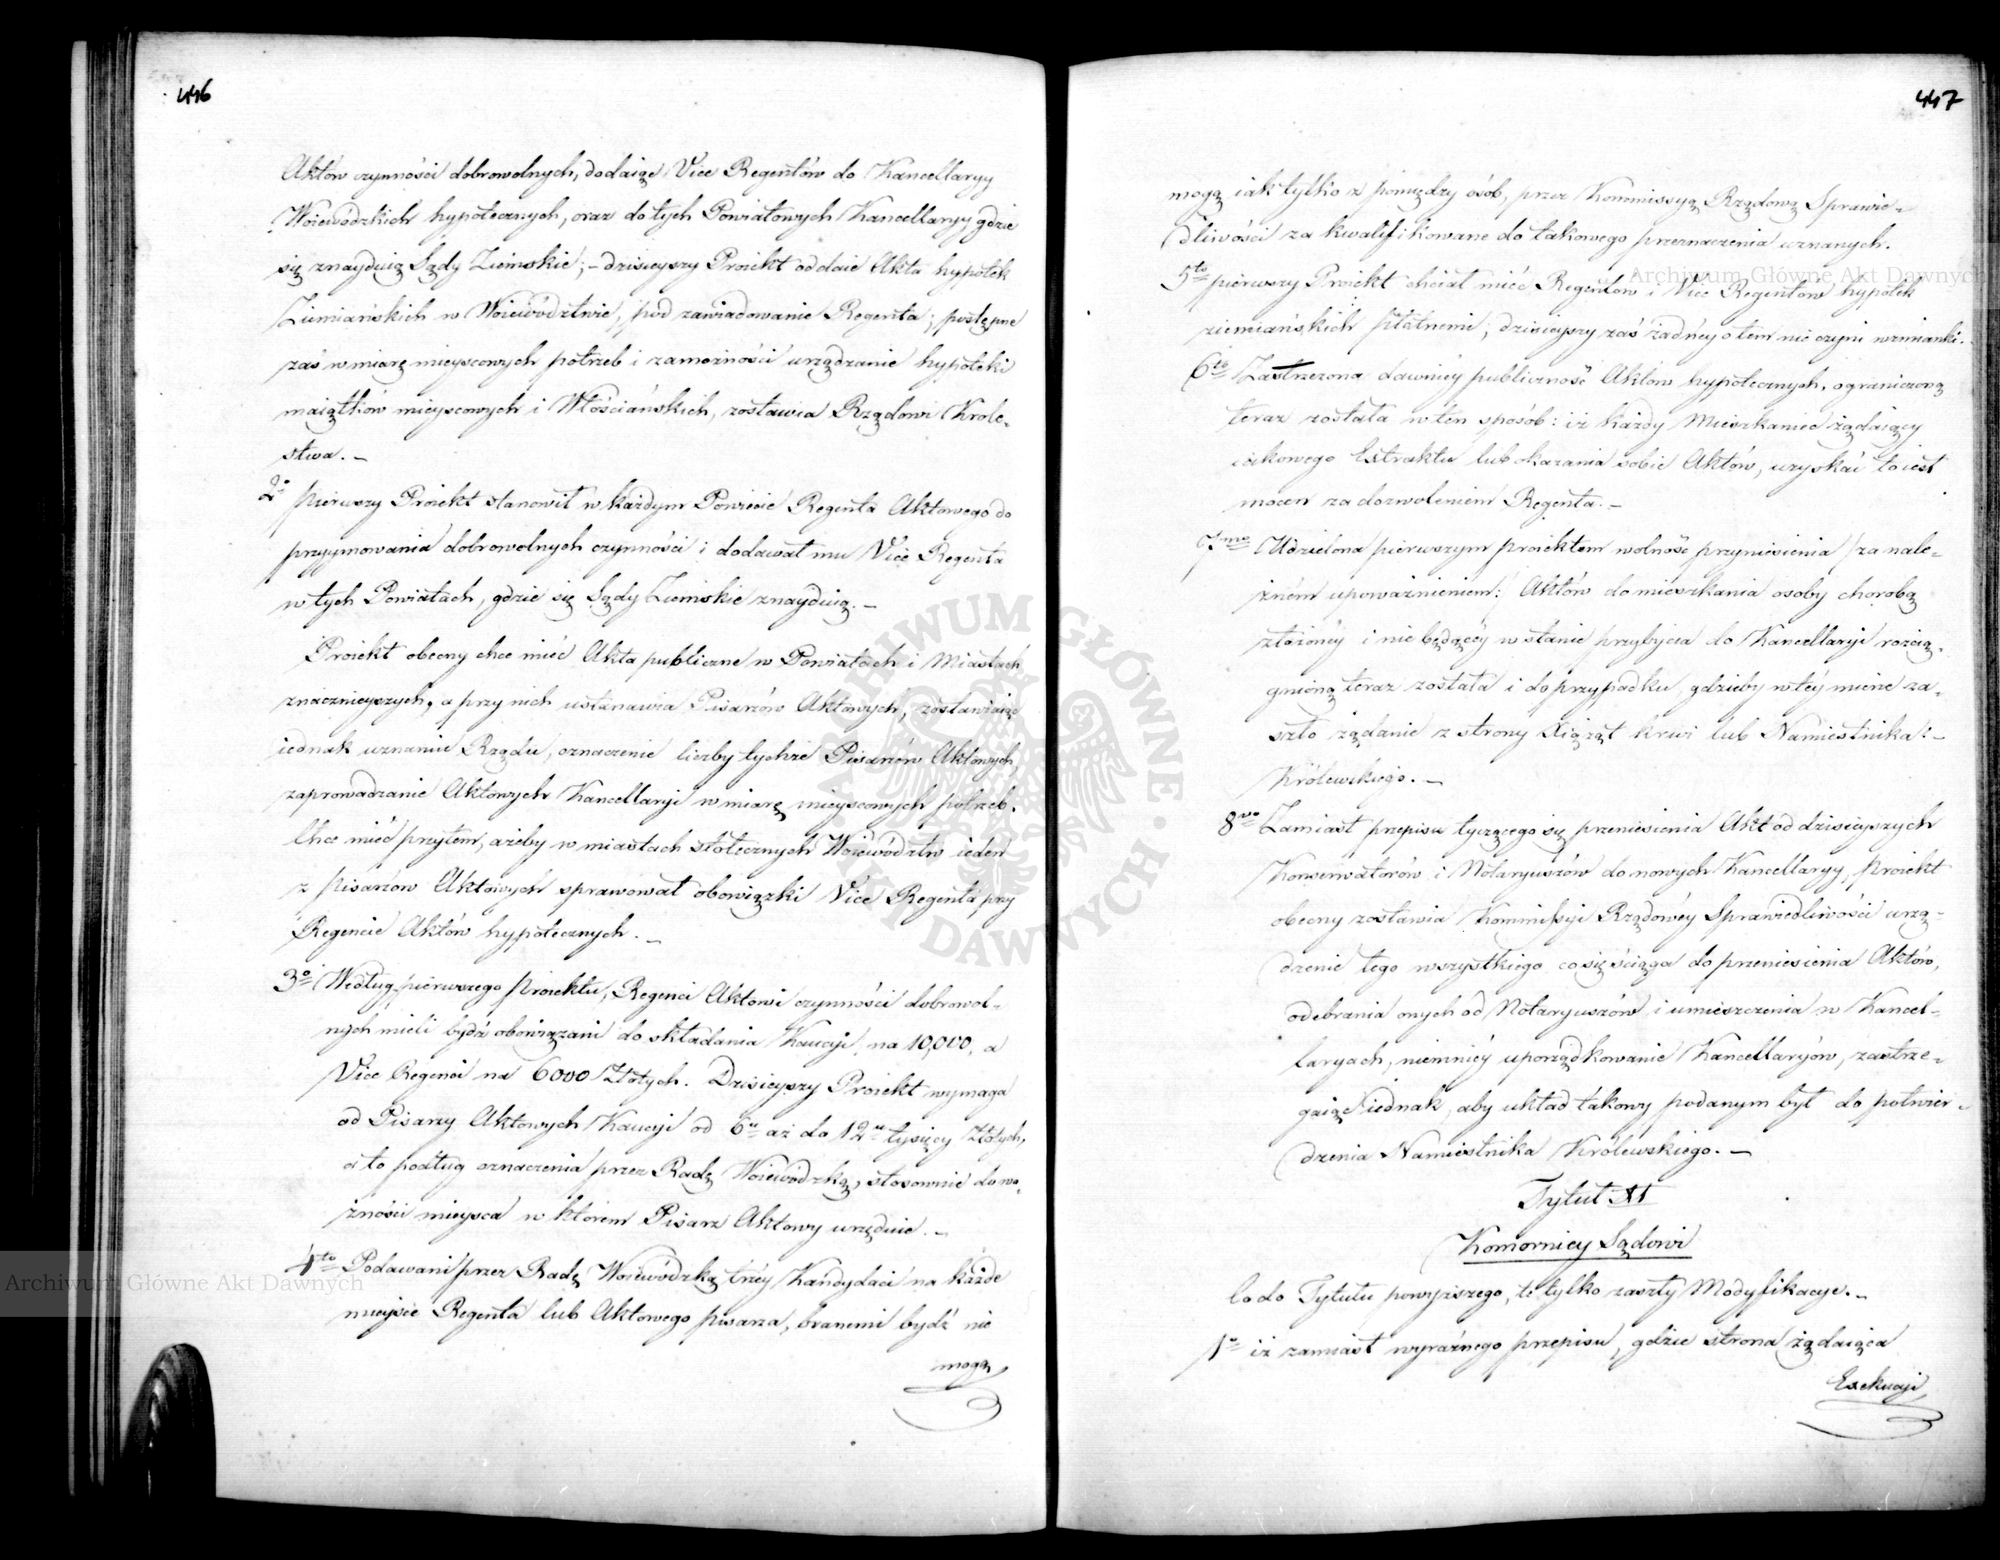 446
Aktów czynności dobrowolnych, dodaiąc Vice Regentów do Kancellaryy
Woiewódzkich hypotecznych, oraz do tych Powiatowych Kancellaryy, gdzie
się znayduią Sądy Ziemskie; - dzisieyszy Proiekt oddaie Akta hypotek
Ziemiańskich w Woiewództwie, pod zawiadowanie Regenta; postępne
zaś w miarę mieyscowych potrzeb i zamożności urządzanie hypoteki
maiątków mieyscowych i Włościańskich, zostawia Rządowi Króle-
stwa. -
2o pierwszy Proiekt stanowił w każdym Powiecie Regenta Aktowego do
przyymowania dobrowolnych czynności i dodawał mu Vice Regenta
w tych Powiatach, gdzie się Sądy Ziemskie znayduią. -
Proiekt obecny chce mieć Akta publiczne w Powiatach i Miastach
znacznieyszych, a przy nich ustanawia Pisarzów Aktowych, zostawiaiąc
iednak uznaniu Rządu, oznaczenie liczby tychże Pisarzów Aktowych,
zaprowadzanie Aktowych Kancellaryi w miarę mieyscowych potrzeb.
Chce mieć przytem, ażeby w miastach stołecznych Woiewództw ieden
z pisarzów Aktowych sprawował obowiązki Vice Regenta przy
Regencie Aktów hypotecznych. -
3o Według pierwszego Proiektu, Regenci Aktowi czynności dobrowol-
nych mieli bydź obowiązani do składania Kaucyi na 10,000, a
Vice Regenci na 6000 Złotych. Dzisieyszy Proiekt wymaga
od Pisarzy Aktowych Kaucyi od 6u aż do 12u tysięcy Złotych,
a to podług oznaczenia przez Radę Woiewódzką, stosownie do wa-
żności mieysca w którem Pisarz Aktowy urzęduie. -
4to Podawani przez Radę Woiewódzką trzey Kandydaci na każde
mieysce Regenta lub Aktowego pisarza, branemi bydź nie
mogą,
447
mogą iak tylko z pomiędzy osób, przez Kommissyą Rządową Sprawie-
dliwości za kwalifikowane do takowego przeznaczenia uznanych.
5to pierwszy Proiekt chciał mieć Regentów i Vice Regentów hypotek
ziemiańskich płatnemi, dzisieyszy zaś żadney o tem nie czyni wzmianki.
6to Zastrzeżona dawniey publiczność Aktów hypotecznych, ograniczoną
teraz została w ten sposób: iż każdy Mieszkaniec żądaiący
iakowego Extraktu lub okazania sobie Aktów, uzyskać to iest
mocen za dozwoleniem Regenta. -
7mo Udzielona pierwszym proiektem wolność przyniesienia /za nale-
żnem upoważnieniem: Aktów do mieszkania osoby chorobą
złożoney i nie będącéy w stanie przybycia do Kancellaryi rozcią-
gnioną teraz została i do przypadku, gdzieby w téy mierze za-
szło żądanie z strony Xiążąt krwi lub Namiestnika
Królewskiego. -
8vo Zamiast przepisu tyczącego się przeniesienia Akt od dzisieyszych
Konserwatorów i Notaryuszów do nowych Kancellaryy, Proiekt
obecny zostawia Kommissyi Rządowéy Sprawiedliwości urzą-
dzenie tego wszystkiego co się ściąga do przeniesienia Aktów,
odebrania onych od Notaryuszów i umieszczenia w Kancel-
laryach, niemniéy uporządkowanie Kancellaryów, zastrze-
gaiąc iednak, aby układ takowy podanym był do potwier-
dzenia Namiestnika Królewskiego. -
Tytuł XI
Komornicy Sądowi
Co do Tytułu powyższego, te tylko zaszły Modyfikacye. -
1o iż zamiast wyraźnego przepisu, gdzie strona żądaiąca
Exekucyi
Archiwum Główne Akt Dawnych
Archiwum Główne Akt Dawnych
ARCHIWUM GŁÓWNE AKT DAWNYCH